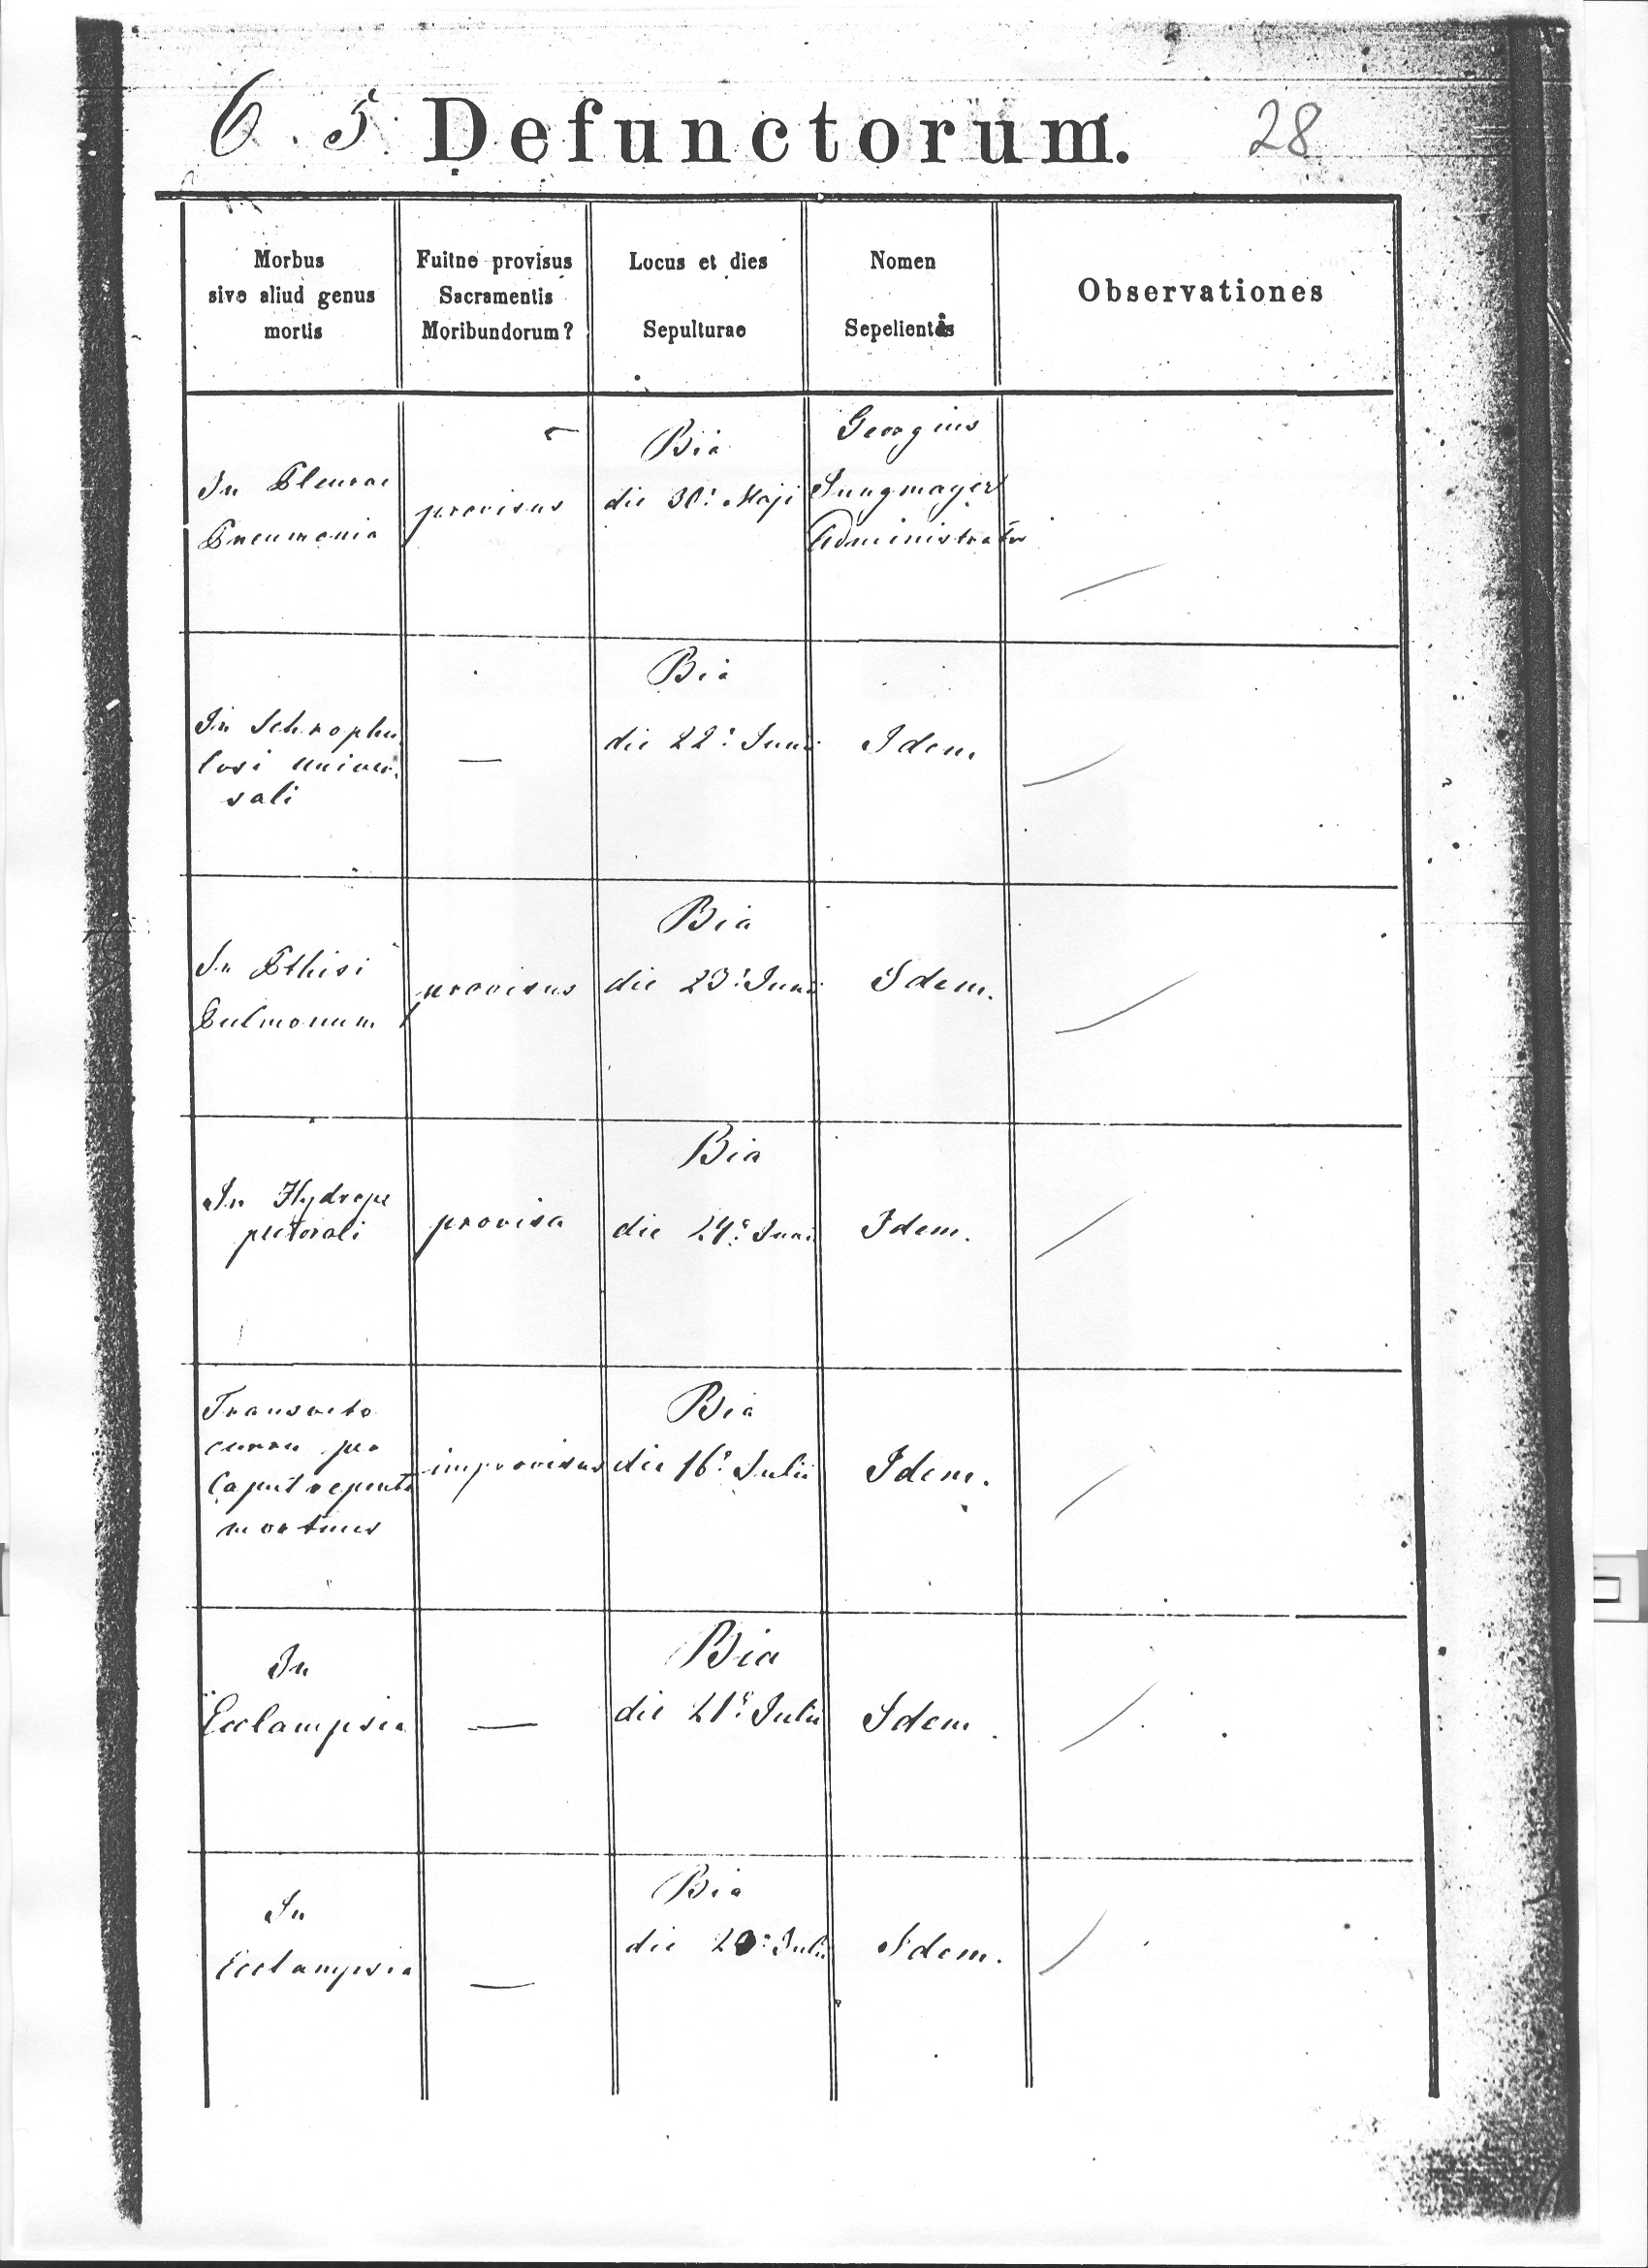 6. 5 Defunctorum. 28
Morbus
sive aliud genus
mortis
Fuitne provisus
Sacramentis
Moribundorum?
Locus et dies
Sepulturae
Nomen
Sepelientis
Observationes
In Pleurae
Pneumonia
provisus
Bia
die 30a Maji
Georgius
Jungmayer
Administrator
In Schrophu
losi univer-
sali
—
Bia
die 22a Junii
Idem
In Pthisi
Pulmonum
provisus
Bia
die 23a Junii
Idem.
In Hydrope
pectorali
provisa
Bia
die 24a Junii
Idem.
Transvecto
curru per
Caput repente
mortuus
improvisus
Bia
die 16a Julii
Idem.
In
Ecclampsia
—
Bia
die 21a Julii
Idem.
In
Ecclampsia
—
Bia
die Julii
Idem.